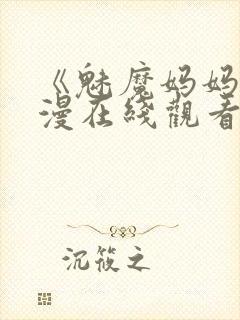 《魅魔妈妈
漫在线观看
沉筱之